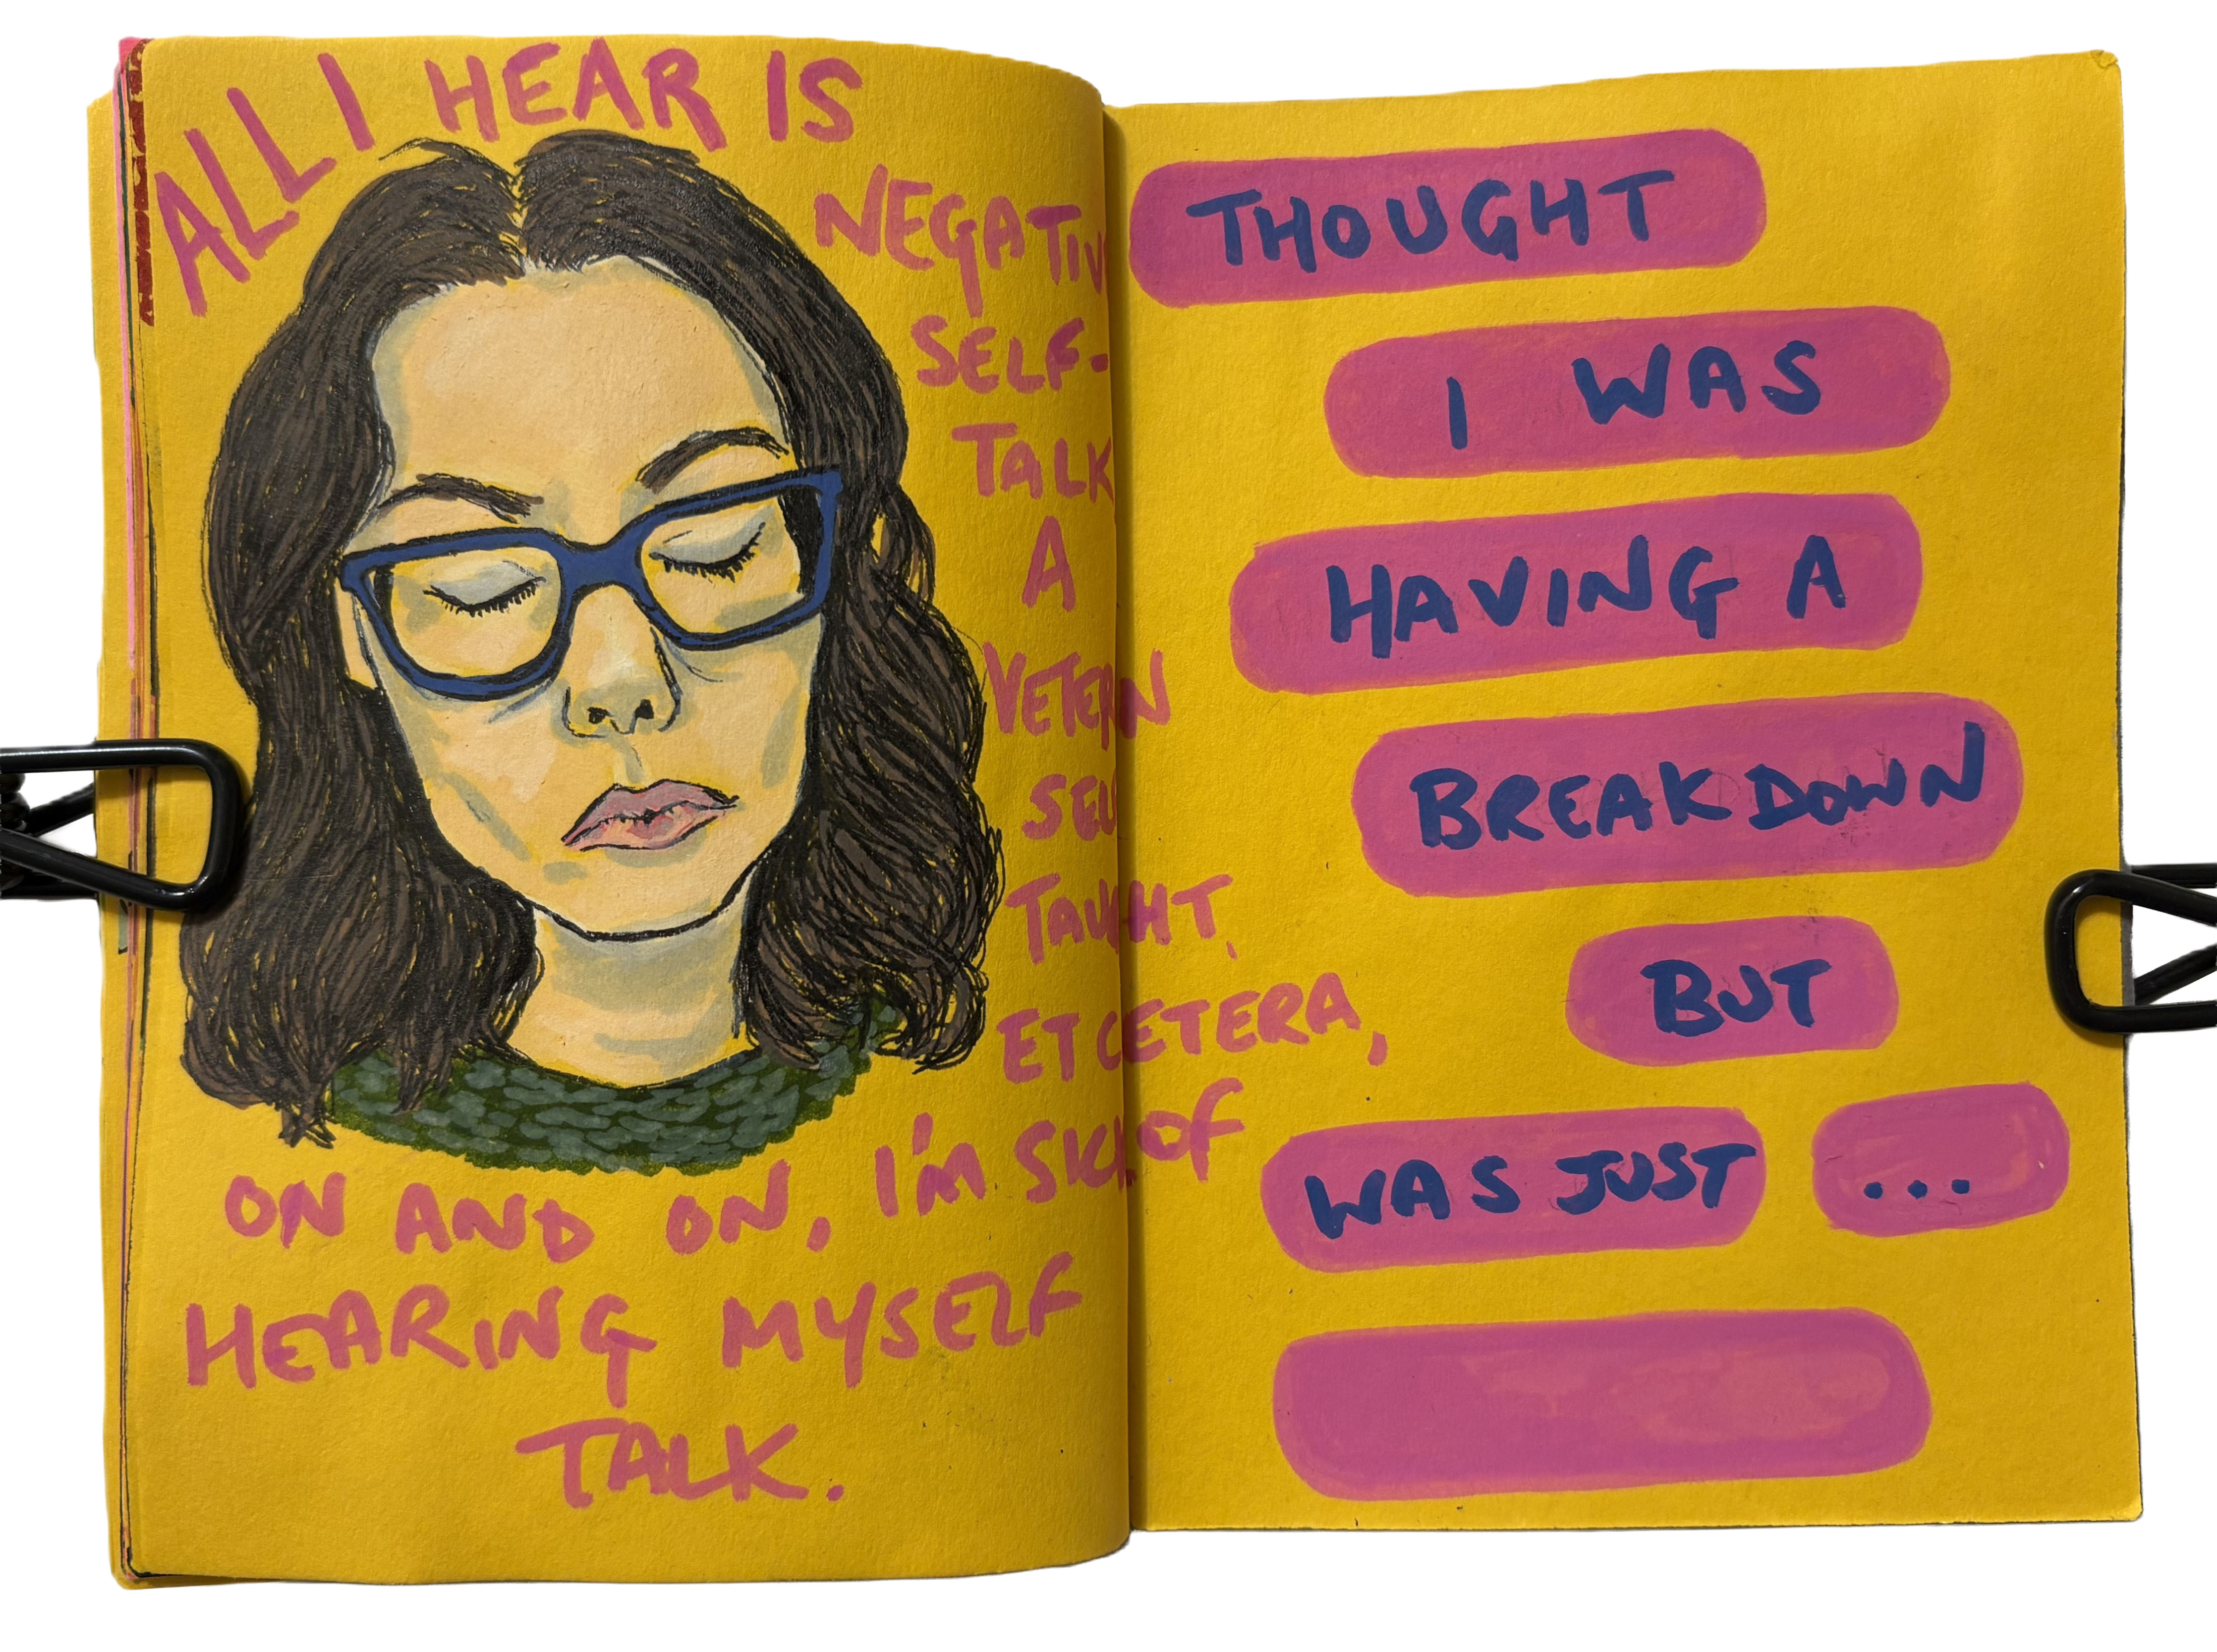 ALL I HEAR IS
NEGATIVE
SELF-
TALK
A
VETERN
SELF
TAUGHT,
ET CETERA,
ON AND ON, I'M SICK OF
HEARING MYSELF
TALK.
THOUGHT
I WAS
HAVING A
BREAKDOWN
BUT
WAS JUST ...